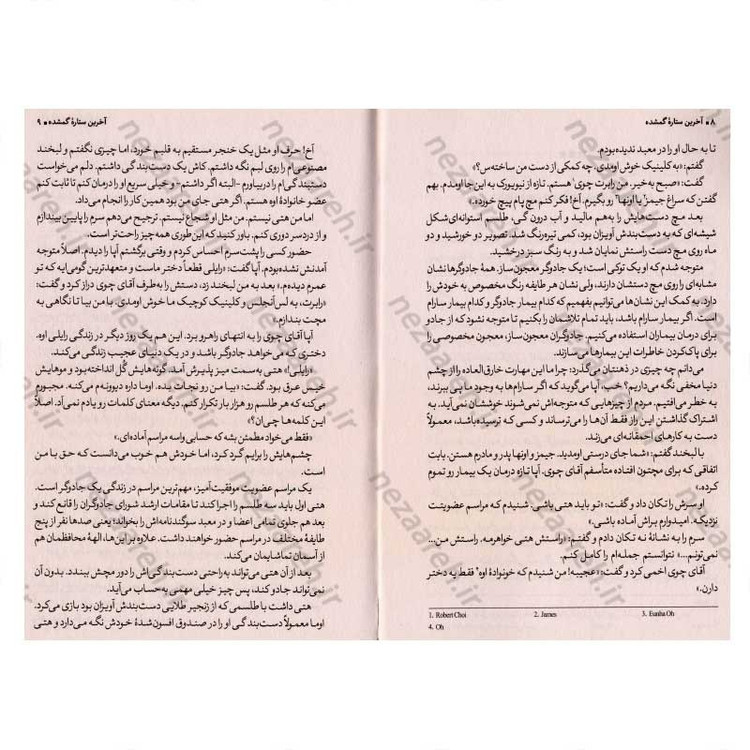 ۸ ■ آخرین ستارهٔ گمشده
تا به حال او را در معبد ندیده‌بودم.
گفتم: «به کلینیک خوش اومدی. چه کمکی از دست من ساخته‌س؟»
گفت: «صبح به‌خیر. من رابرت چوی۱ هستم. تازه از نیویورک به این‌جا اومدم. بهم
گفتن که سراغ جیمز۲ یا اونها۳ رو بگیرم. آخ! فکر کنم مچ پام پیچ خورده.»
بعد مچ دست‌هایش را به‌هم مالید و آب درون گی، طلسم استوانه‌ای‌شکل
شیشه‌ای که به دست‌بندش آویزان بود، کمی تیره‌رنگ شد. تصویر دو خورشید و دو
ماه روی مچ دست راستش نمایان شد و به رنگ سبز درخشید.
متوجه شدم که او یک توکی است؛ یک جادوگر معجون‌ساز. همهٔ جادوگرها نشان
مشابه‌ای را روی مچ دستشان دارند، ولی نشان هر طایفه رنگ مخصوص به خودش را
دارد. به کمک این نشان‌ها می‌توانیم بفهمیم که کدام بیمار جادوگر و کدام بیمار سارام
است. اگر بیمار سارام باشد، باید تمام تلاشمان را بکنیم تا متوجه نشود که از جادو
برای درمان بیماران استفاده می‌کنیم. جادوگران معجون‌ساز، معجون مخصوصی را
برای پاک‌کردن خاطرات این بیمارها می‌سازند.
می‌دانم چه چیزی در ذهنتان می‌گذرد: چرا ما این مهارت خارق‌العاده را از چشم
دنیا مخفی نگه می‌داریم؟ خب، آپا می‌گوید که اگر سارام‌ها به وجود ما پی ببرند،
به خطر می‌افتیم. مردم از چیزهایی که متوجه‌اش نمی‌شوند خوششان نمی‌آید. به
اشتراک گذاشتن این راز فقط آن‌ها را می‌ترساند و کسی که ترسیده‌باشد، معمولاً
دست به کارهای احمقانه‌ای می‌زند.
با لبخند گفتم: «شما جای درستی اومدید. جیمز و اونها پدر و مادرم هستن. بابت
اتفاقی که برای مچتون افتاده متأسفم آقای چوی. آپا تازه درمان یک بیمار رو تموم
کرده.»
او سرش را تکان داد و گفت: «تو باید هتی باشی. شنیدم که مراسم عضویتت
نزدیکه. امیدوارم براش آماده باشی.»
سرم را به نشانهٔ نه تکان دادم و گفتم: «راستش هتی خواهرمه. راستش من...
نمی‌تونم...» نتوانستم جمله‌ام را کامل کنم.
آقای چوی اخمی کرد و گفت: «عجیبه! من شنیدم که خونوادهٔ اوه۴ فقط یه دختر
دارن.»
1. Robert Choi 2. James 3. Eunha Oh
4. Oh
آخرین ستارهٔ گمشده ■ ۹
آخ! حرف او مثل یک خنجر مستقیم به قلبم خورد، اما چیزی نگفتم و لبخند
مصنوعی‌ام را روی لبم نگه داشتم. کاش یک دست‌بند گی داشتم. دلم می‌خواست
دستبند گی‌ام را دربیاورم -البته اگر داشتم- و خیلی سریع او را درمان کنم تا ثابت کنم
عضو خانوادهٔ اوه هستم. اگر هتی جای من بود همین کار را انجام می‌داد.
اما من هتی نیستم. من مثل او شجاع نیستم. ترجیح می‌دهم سرم را پایین بیندازم
و از دردسر دوری کنم. باور کنید که این‌طوری همه‌چیز راحت‌تر است.
حضور کسی را پشت‌سرم احساس کردم و وقتی برگشتم آپا را دیدم. اصلاً متوجه
آمدنش نشده‌بودم. آپا گفت: «رایلی قطعاً دختر ماست و متعهدترین گومی‌ایه که تو
عمرم دیده‌م.» بعد به من لبخند زد، دستش را به‌طرف آقای چوی دراز کرد و گفت:
«رابرت، به لس‌آنجلس و کلینیک کوچیک ما خوش اومدی. با من بیا تا نگاهی به
مچت بندازم.»
آپا آقای چوی را به انتهای راهرو برد. این هم یک روز دیگر در زندگی رایلی اوه.
دختری که می‌خواهد جادوگر باشد و در یک دنیای عجیب زندگی می‌کند.
«رایلی!» هتی به‌سمت میز پذیرش آمد. گونه‌هایش گل انداخته‌بود و موهایش
خیس عرق بود. گفت: «بیا من رو نجات بده. اوما داره دیوونه‌م می‌کنه. مجبورم
می‌کنه که هر طلسم رو هزار بار تکرار کنم. دیگه معنای کلمات رو یادم نمی‌آد. اصلاً
این کلمه‌ها چی‌ان؟»
«فقط می‌خواد مطمئن بشه که حسابی واسه مراسم آماده‌ای.»
چشم‌هایش را برایم گرد کرد، اما خودش هم خوب می‌دانست که حق با من
است.
یک مراسم عضویت موفقیت‌آمیز، مهم‌ترین مراسم در زندگی یک جادوگر است.
هتی اول باید سه طلسم را اجرا کند تا مقامات ارشد شورای جادوگران را قانع کند و
بعد هم جلوی تمامی اعضا و در معبد سوگندنامه‌اش را بخواند؛ یعنی صدها نفر از پنج
طایفهٔ مختلف در مراسم حضور خواهند داشت. علاوه بر این‌ها، الههٔ محافظمان هم
از آسمان تماشایمان می‌کند.
بعد از آن هتی می‌تواند به‌راحتی دست‌بند گی‌اش را دور مچش ببندد. بدون آن
نمی‌تواند جادو کند، پس چیز خیلی مهمی به‌حساب می‌آید.
هتی داشت با طلسمی که از زنجیر طلایی دست‌بندش آویزان بود بازی می‌کرد.
اوما معمولاً دست‌بند گی او را در صندوق افسون‌شدهٔ خودش نگه می‌دارد و هتی
nezaareh.ir